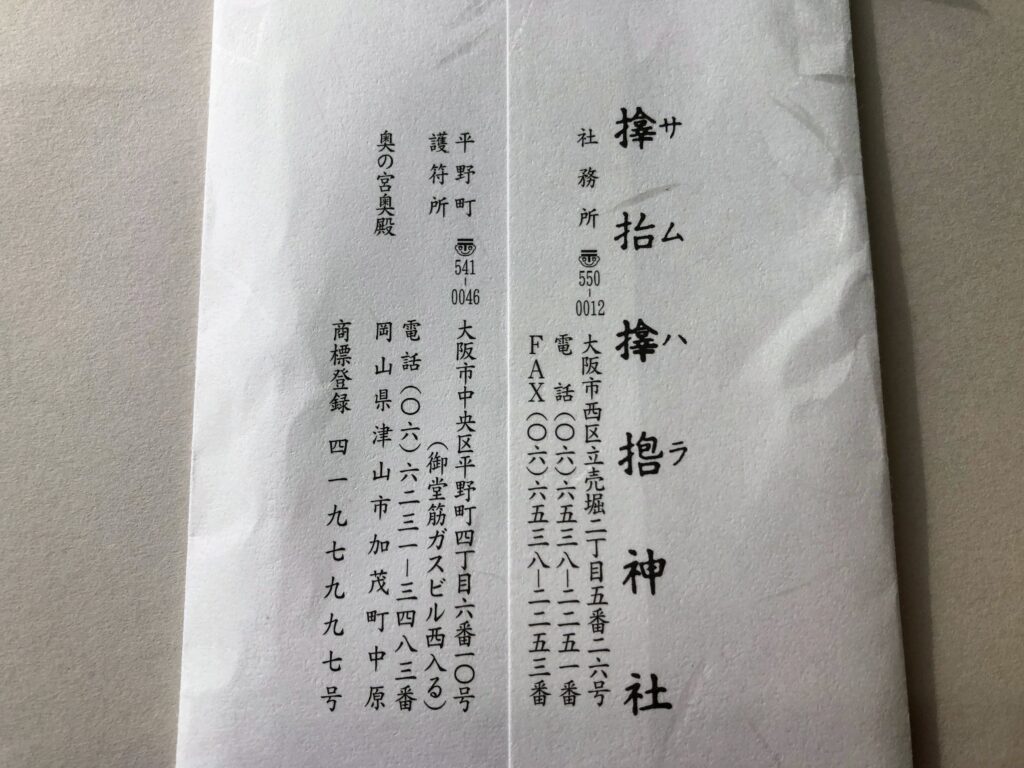 サムハラ
𪮷𫝼𪮷𫞂神社
社務所 〠550-0012 大阪市西区立売堀二丁目五番二六号
電話(〇六)六五三八―二二五一番
FAX(〇六)六五三八―二二五三番
平野町 〠541-0046 大阪市中央区平野町四丁目六番一〇号
護符所 (御堂筋ガスビル西入る)
電話(〇六)六二三一―三四八三番
奥の宮奥殿 岡山県津山市加茂町中原
商標登録 四一九七九九七号